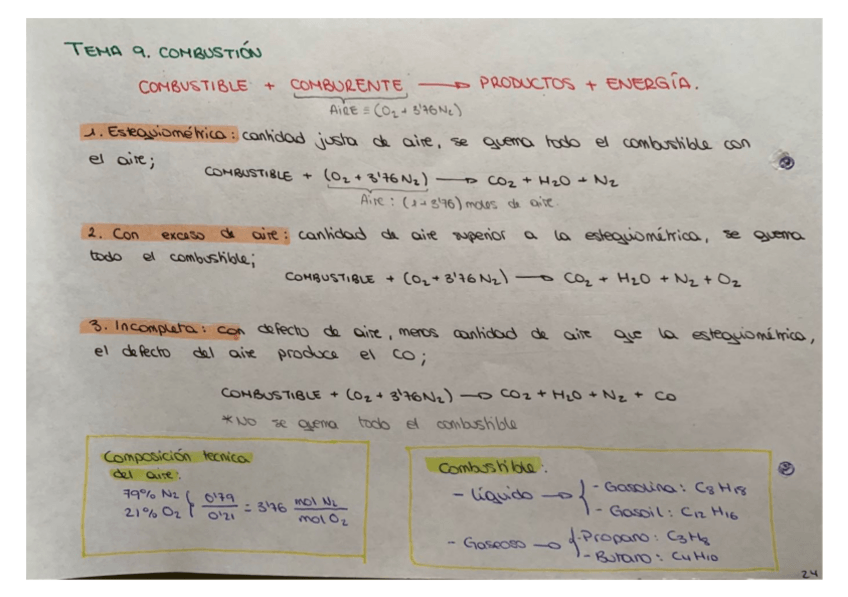 TEMA 9. COMBUSTIÓN
COMBUSTIBLE + COMBURENTE → PRODUCTOS + ENERGÍA.
AIRE ≡ (O₂ + 3'76N₂)
1. Estequiométrica: cantidad justa de aire, se quema todo el combustible con
el aire;
COMBUSTIBLE + (O₂ + 3'76N₂) → CO₂ + H₂O + N₂
Aire: (1+3'76) moles de aire.
2. Con exceso de aire: cantidad de aire superior a la estequiométrica, se quema
todo el combustible;
COMBUSTIBLE + (O₂ + 3'76N₂) → CO₂ + H₂O + N₂ + O₂
3. Incompleta: con defecto de aire, menos cantidad de aire que la estequiométrica,
el defecto del aire produce el CO;
COMBUSTIBLE + (O₂ + 3'76N₂) → CO₂ + H₂O + N₂ + CO
*No se quema todo el combustible
Composición tecnica
del aire:
79% N₂
21% O₂ { 0'79/0'21 = 3'76 mol N₂/mol O₂
Combustible:
- Líquido → { - Gasolina: C₈H₁₈
- Gasoil: C₁₂H₁₆
- Gaseoso → { - Propano: C₃H₈
- Butano: C₄H₁₀
24